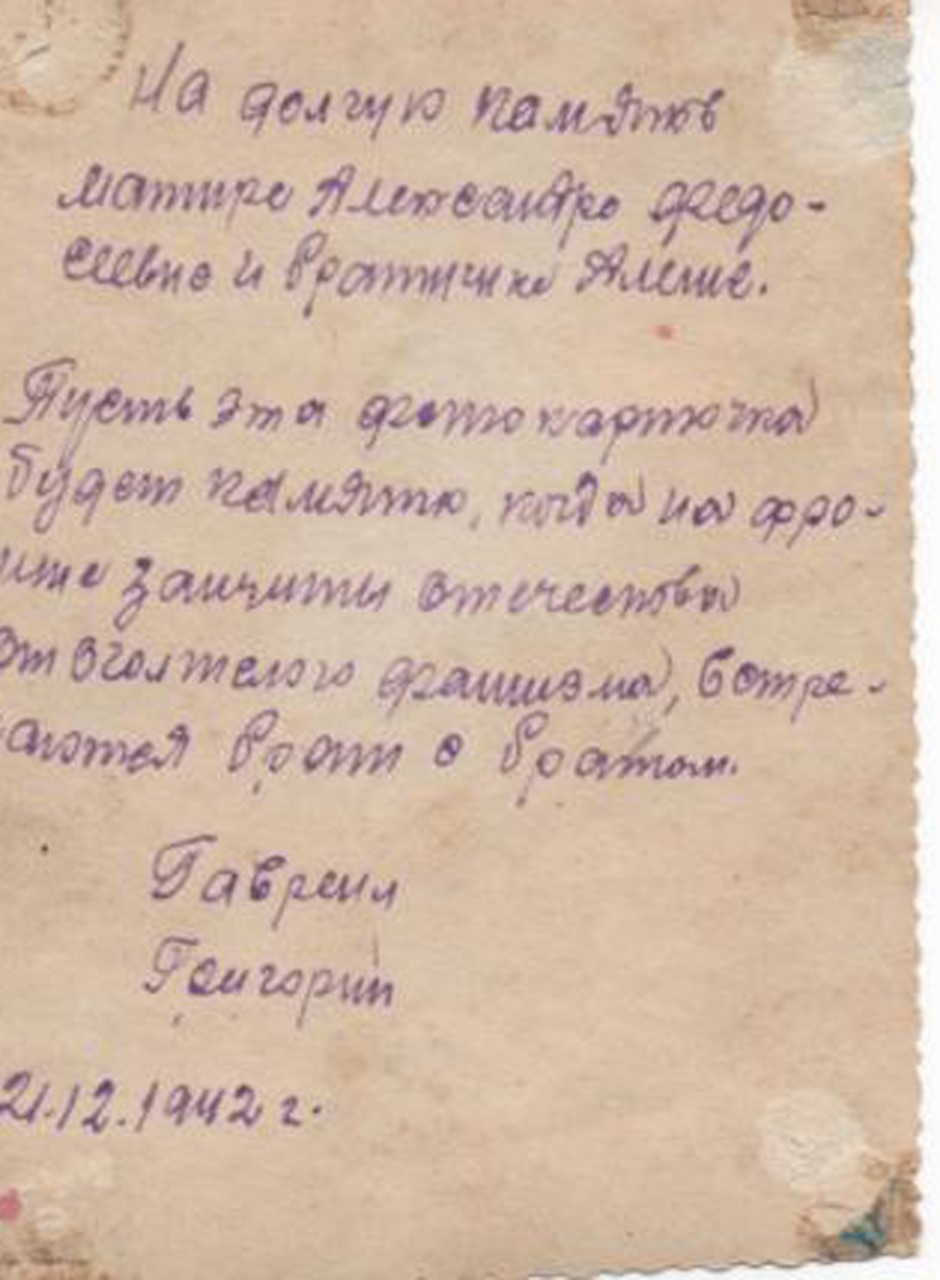 На долгую память
матире Александре Федо-
сеевне и братишке Алеше.
Пусть эта фотокарточка
будет памятю, когда на фро-
нте защиты отечества
от зголтелого фашизма, встре-
чаются брат с братом.
Гавреил
Григорий
21.12.1942 г.